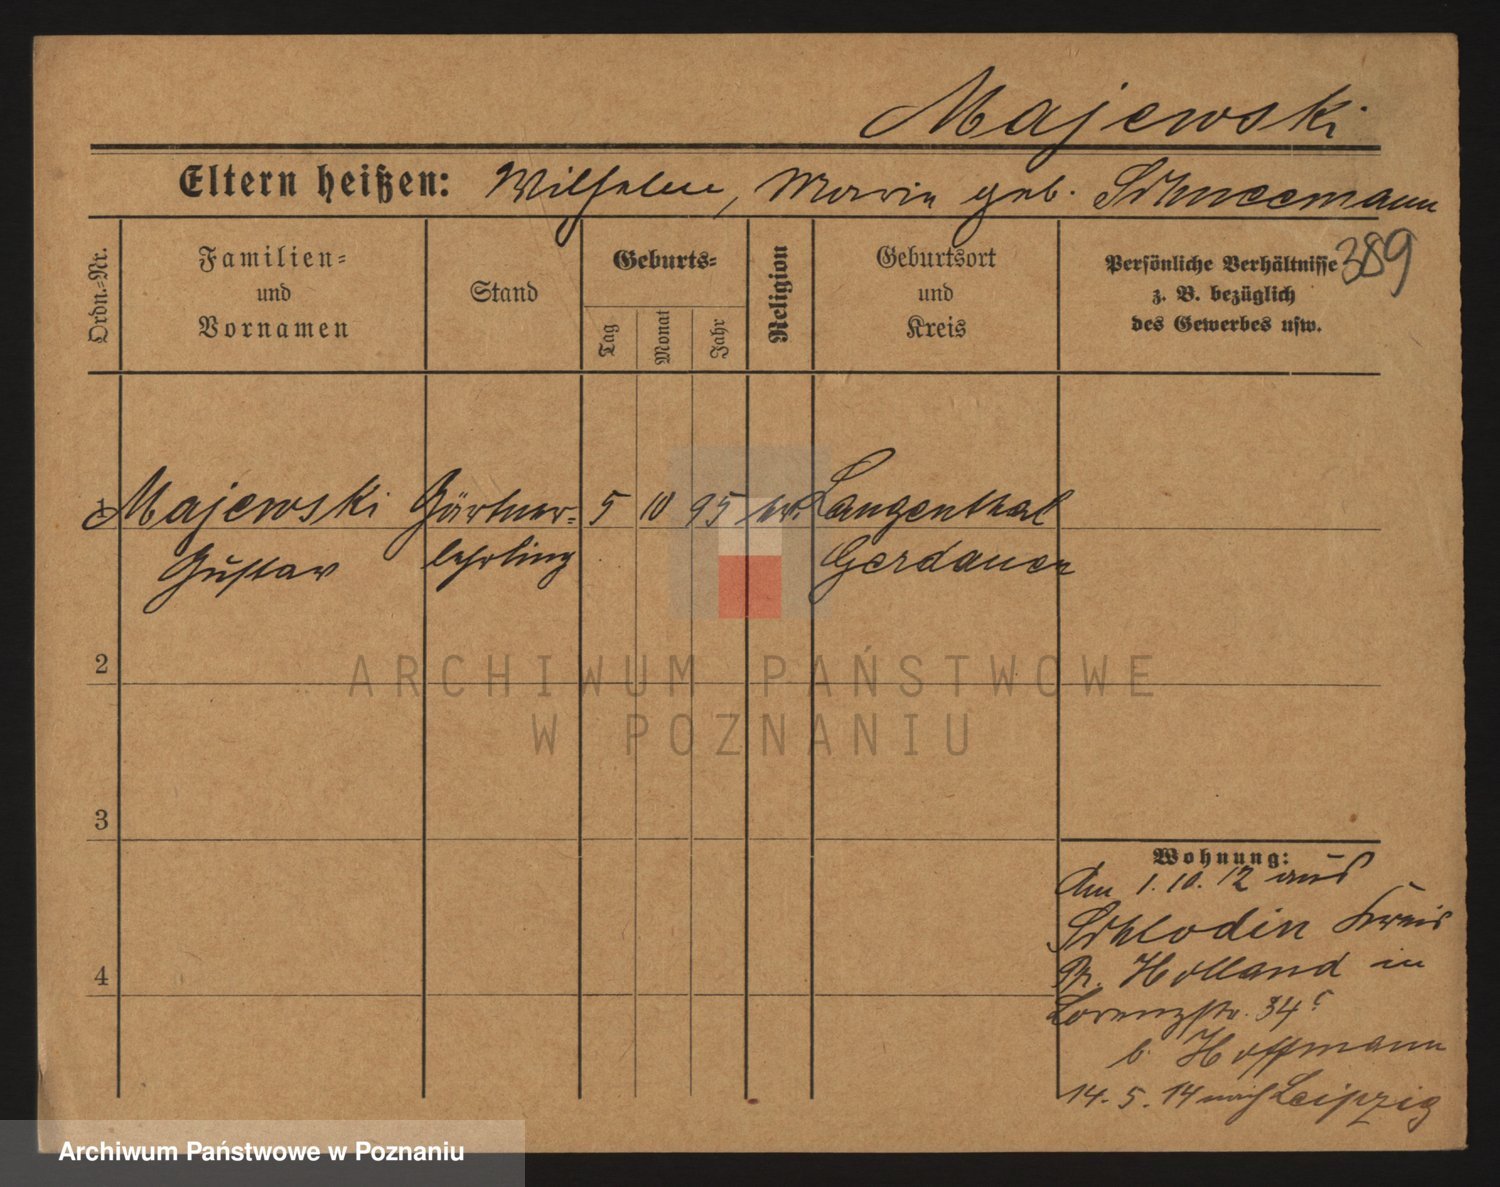 Majewski
Eltern heißen: Wilhelm, Marie geb. Schneemann
389
Ordn.-Nr.
Familien-
und
Vornamen
Stand
Geburts-
Tag
Monat
Jahr
Religion
Geburtsort
und
Kreis
Persönliche Verhältnisse
z. B. bezüglich
des Gewerbes usw.
1 Majewski Gärtner- 5 10 95 Langenthal
Gustav lehrling Gerdauen
2
3
4
Wohnung:
Am 1.10.12 aus
Schlodin Kreis
Pr. Holland in
Lorenzstr. 34c
b. Hoffmann
14.5.14 nach Leipzig
ARCHIWUM PAŃSTWOWE
W POZNANIU
Archiwum Państwowe w Poznaniu